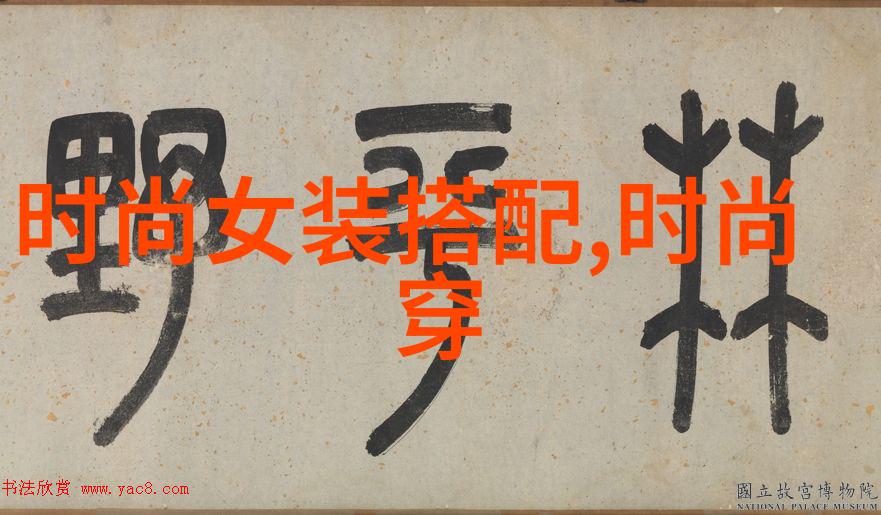 林平野
时尚女装搭配,时尚
穿
书法欣赏 www.yac8.com
國立故宮博物院
NATIONAL PALACE MUSEUM